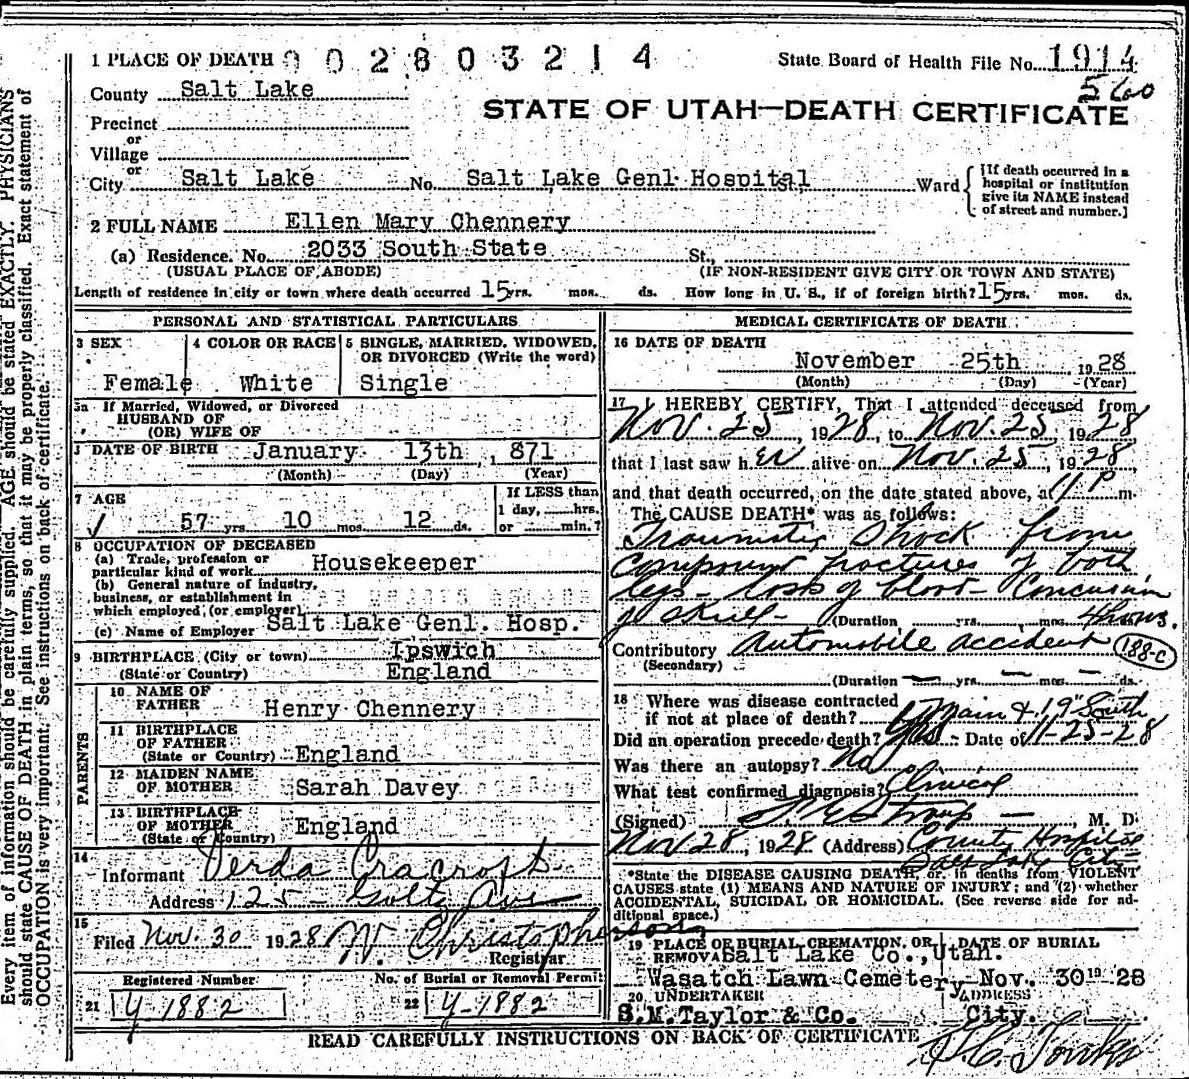 Every item of information should be carefully supplied. AGE should be stated EXACTLY. PHYSICIANS
should state CAUSE OF DEATH in plain terms, so that it may be properly classified. Exact statement of
OCCUPATION is very important. See instructions on back of certificate.
1 PLACE OF DEATH 002803214 State Board of Health File No. 1914
County Salt Lake 560
STATE OF UTAH—DEATH CERTIFICATE
Precinct
or
Village
or
City Salt Lake No. Salt Lake Genl. Hospital Ward
[If death occurred in a
hospital or institution
give its NAME instead
of street and number.]
2 FULL NAME Ellen Mary Chennery
(a) Residence. No. 2033 South State St.,
(USUAL PLACE OF ABODE) (IF NON-RESIDENT GIVE CITY OR TOWN AND STATE)
Length of residence in city or town where death occurred 15 yrs. mos. ds. How long in U. S., if of foreign birth? 15 yrs. mos. ds.
PERSONAL AND STATISTICAL PARTICULARS
3 SEX 4 COLOR OR RACE 5 SINGLE, MARRIED, WIDOWED,
OR DIVORCED (Write the word)
Female White Single
5a If Married, Widowed, or Divorced
HUSBAND OF
(OR) WIFE OF
DATE OF BIRTH January 13th, 871
(Month) (Day) (Year)
7 AGE
If LESS than
1 day, hrs.
or min.?
57 yrs 10 mos. 12 ds.
8 OCCUPATION OF DECEASED
(a) Trade, profession or
particular kind of work Housekeeper
(b) General nature of industry,
business, or establishment in
which employed (or employer)
(c) Name of Employer Salt Lake Genl. Hosp.
9 BIRTHPLACE (City or town) Ipswich
(State or Country) England
PARENTS
10 NAME OF
FATHER Henry Chennery
11 BIRTHPLACE
OF FATHER
(State or Country) England
12 MAIDEN NAME
OF MOTHER Sarah Davey
13 BIRTHPLACE
OF MOTHER
(State or Country) England
14
Informant Verda Cracroft
Address 125 Ave
15
Filed Nov. 30 1928 W. Christopherson
Registrar
Registered Number No. of Burial or Removal Permit
21 Y-1882 22 Y-1882
MEDICAL CERTIFICATE OF DEATH
16 DATE OF DEATH
November 25th 1928
(Month) (Day) (Year)
17 I HEREBY CERTIFY, That I attended deceased from
Nov. 25, 1928, to Nov. 25 1928
that I last saw her alive on Nov. 25, 1928,
and that death occurred, on the date stated above, at 11 P m.
The CAUSE DEATH* was as follows:
Traumatic shock from
Compound fractures of both
legs - loss of blood - Concussion
of skull - (Duration yrs. mos. 4 hours.
Contributory Automobile accident 188-C
(Secondary)
(Duration — yrs. — mos — ds.
18 Where was disease contracted
if not at place of death? Main & 19" South
Did an operation precede death? Yes Date of 11-25-28
Was there an autopsy? No
What test confirmed diagnosis? Clinical
(Signed) M. D.
Nov 28, 1928 (Address) County Hospital
Salt Lake City
*State the DISEASE CAUSING DEATH, or, in deaths from VIOLENT
CAUSES state (1) MEANS AND NATURE OF INJURY; and (2) whether
ACCIDENTAL, SUICIDAL OR HOMICIDAL. (See reverse side for ad-
ditional space.)
19 PLACE OF BURIAL, CREMATION, OR DATE OF BURIAL
REMOVAL Salt Lake Co., Utah.
Wasatch Lawn Cemetery Nov. 30 19 28
20 UNDERTAKER ADDRESS
S.M. Taylor & Co. City.
READ CAREFULLY INSTRUCTIONS ON BACK OF CERTIFICATE